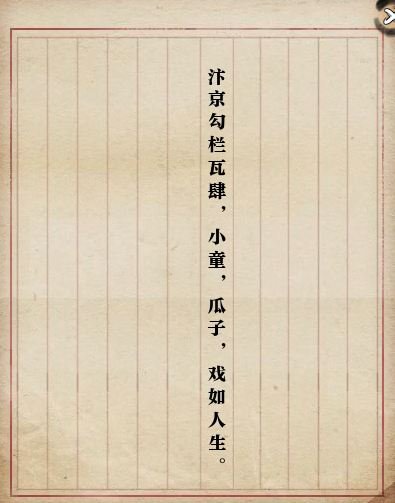 汴京勾栏瓦肆，小童，瓜子，戏如人生。